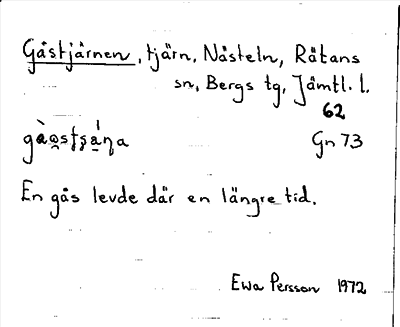 Gåstjärnen, tjärn, Nästeln, Rätans
sn, Bergs tg, Jämtl. l.
62
Gn 73
En gås levde där en längre tid.
Ewa Persson 1972